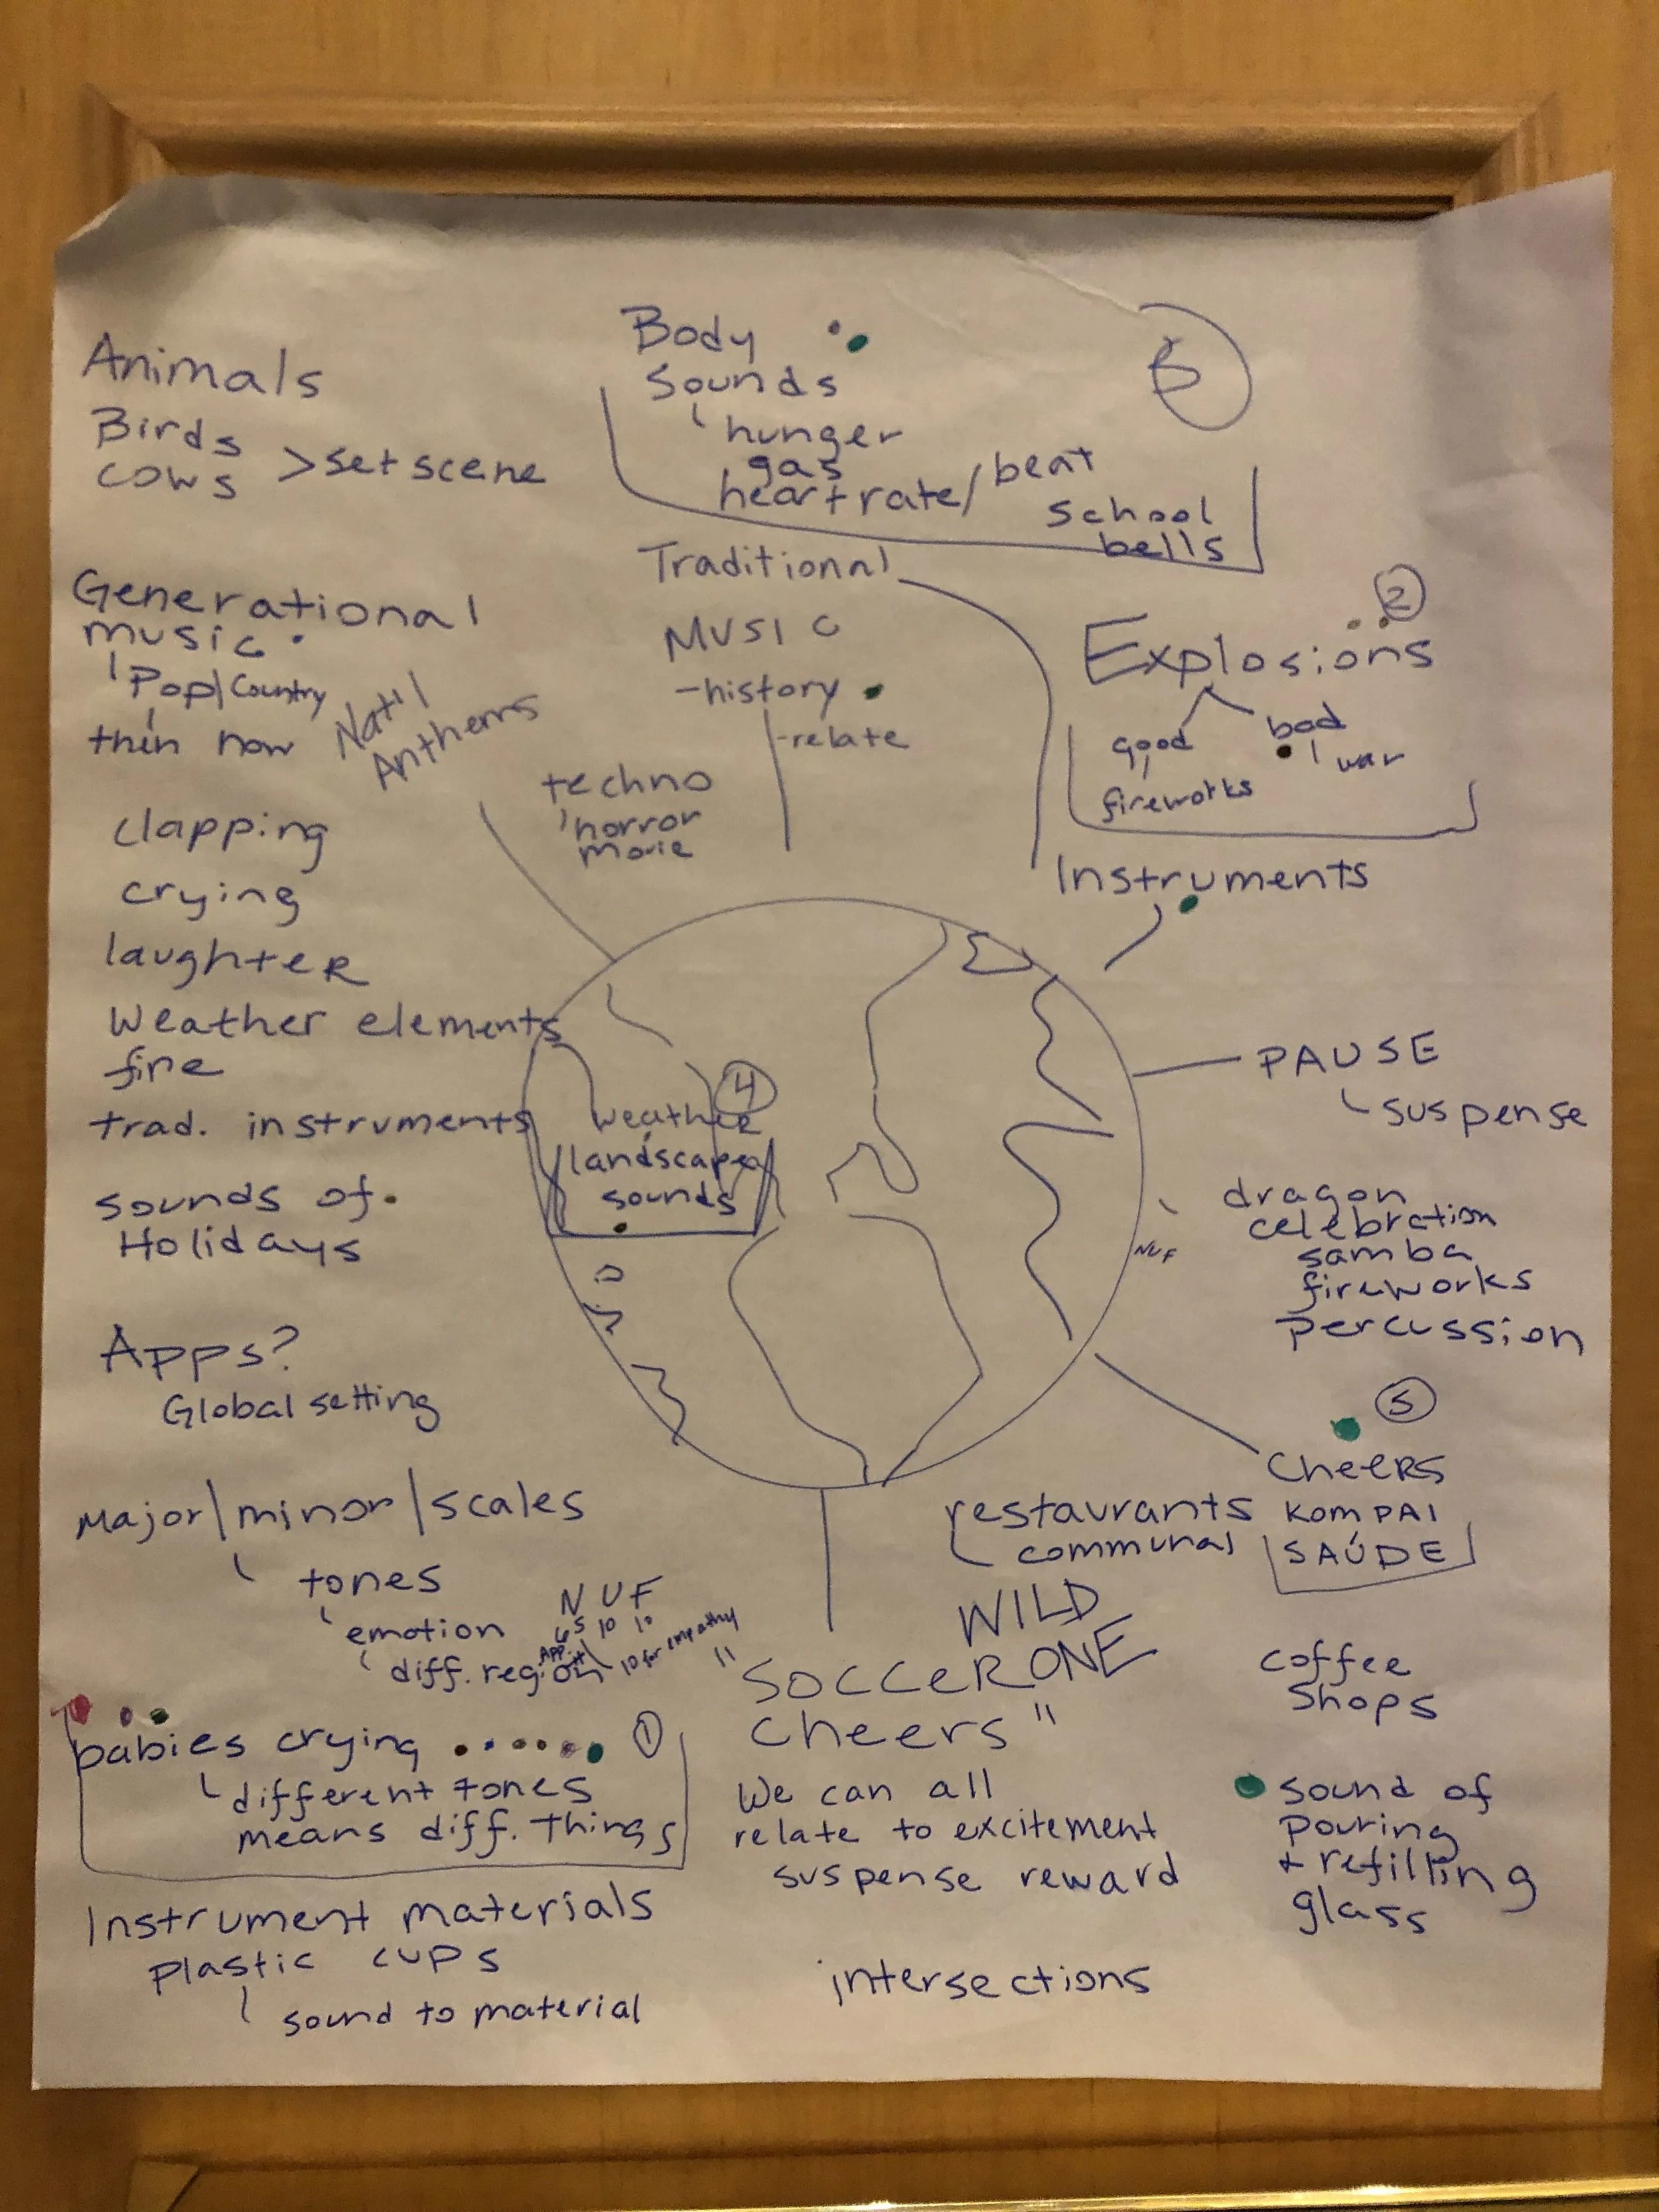 Animals
Birds
cows
> set scene
Body
Sounds
hunger
gas
heart rate/beat
school
bells
Generational
music
Pop/Country
then now
Nat'l
Anthems
Traditional
Music
- history
- relate
techno
horror
movie
2
Explosions
good
bad
fireworks
war
Instruments
clapping
crying
laughter
Weather elements
fire
trad. instruments
sounds of
Holidays
4
weather
landscape
sounds
PAUSE
suspense
dragon
celebration
samba
fireworks
percussion
NUF
Apps?
Global setting
5
Cheers
KOMPAI
SAÚDE
restaurants
communal
Major/minor/scales
tones
emotion
diff. region
NUF
5 10 10
10 for empathy
WILD
ONE
"Soccer
cheers"
We can all
relate to excitement
suspense reward
coffee
shops
babies crying
1
different tones
means diff. things
sound of
pouring
+ refilling
glass
Instrument materials
plastic cups
sound to material
intersections